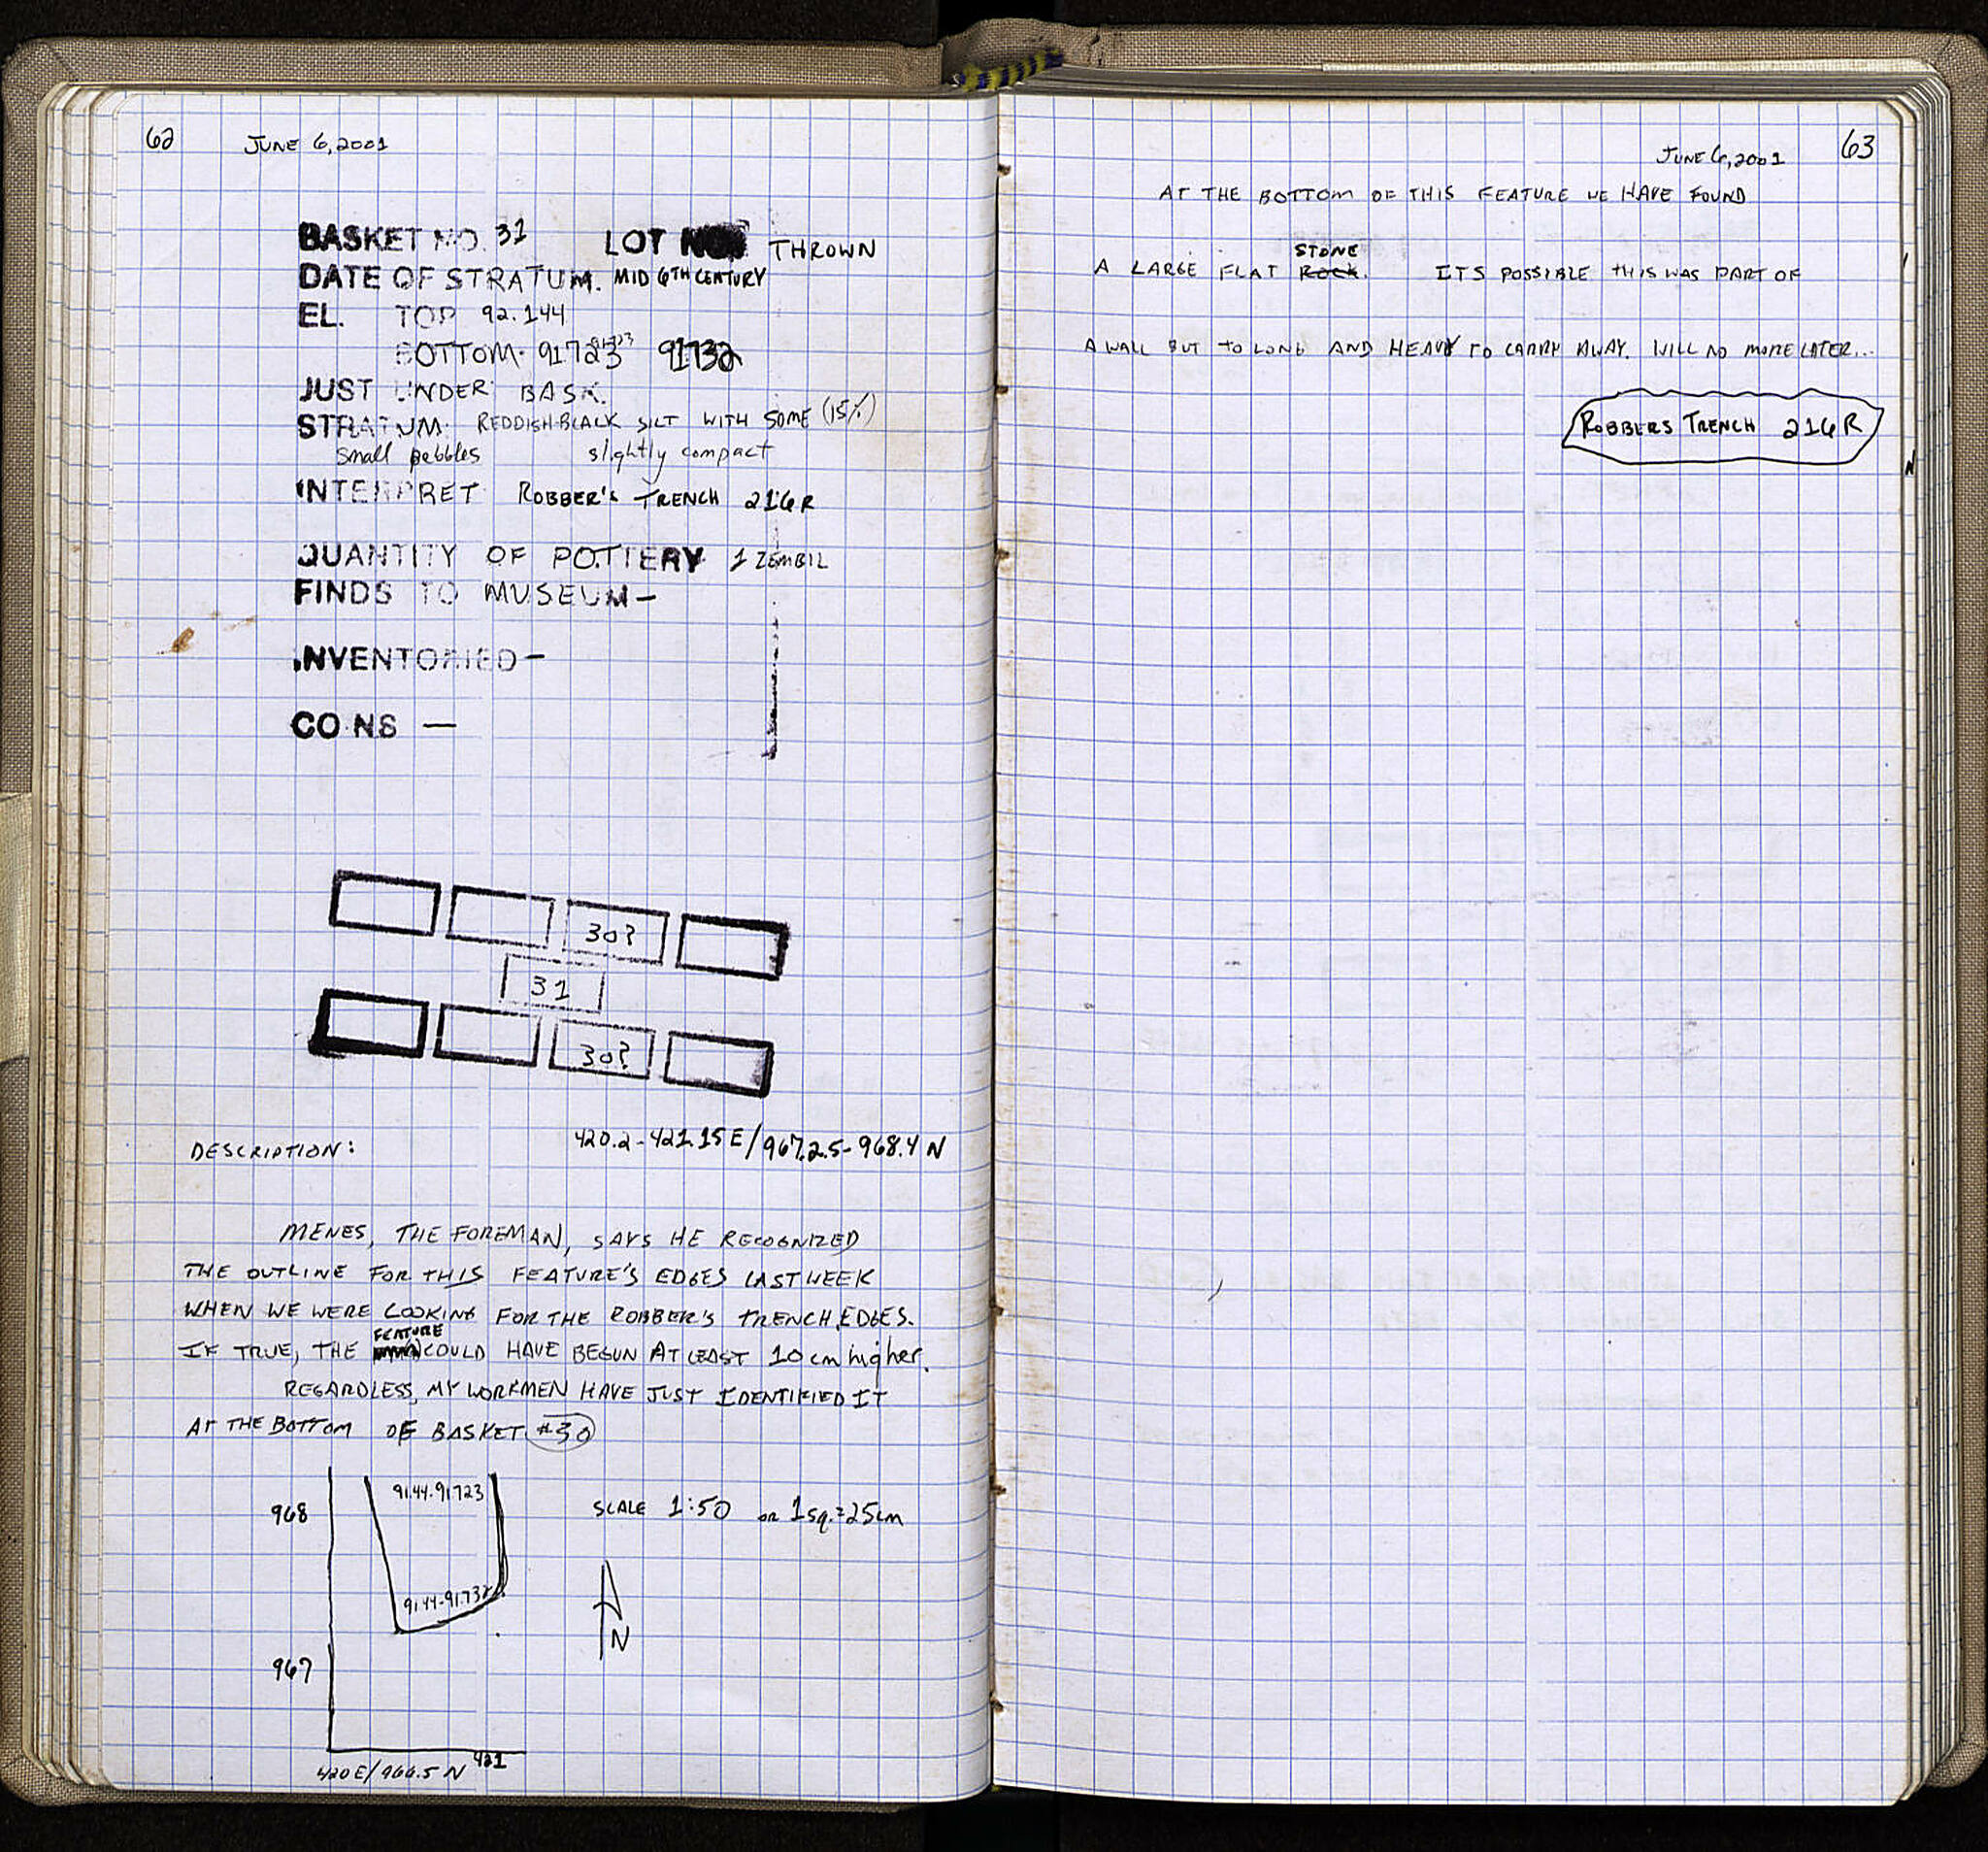 62 JUNE 6, 2001
BASKET NO. 31 LOT THROWN
DATE OF STRATUM. MID 6TH CENTURY
EL. TOP 92.144
BOTTOM. 91.732
JUST UNDER BASK.
STRATUM: REDDISH-BLACK SILT WITH SOME (15%)
small pebbles slightly compact
INTERPRET ROBBER'S TRENCH 216R
QUANTITY OF POTTERY 1 ZEMBIL
FINDS TO MUSEUM —
INVENTORIED —
COINS —
30?
31
30?
DESCRIPTION: 420.2-421.15E/967.2.5-968.4 N
MENES, THE FOREMAN, SAYS HE RECOGNIZED
THE OUTLINE FOR THIS FEATURE'S EDGES LAST WEEK
WHEN WE WERE LOOKING FOR THE ROBBER'S TRENCH EDGES.
IF TRUE, THE FEATURE COULD HAVE BEGUN AT LEAST 10 cm higher.
REGARDLESS, MY WORKMEN HAVE JUST IDENTIFIED IT
AT THE BOTTOM OF BASKET #30
91.44-91.723
968 SCALE 1:50 or 1sq.=25cm
91.44-91.732
N
967
421
420 E/966.5 N
JUNE 6, 2001 63
AT THE BOTTOM OF THIS FEATURE WE HAVE FOUND
STONE
A LARGE FLAT ROCK. ITS POSSIBLE THIS WAS PART OF
A WALL BUT TO LONG AND HEAVY TO CARRY AWAY. WILL NO MORE LATER...
ROBBERS TRENCH 216R